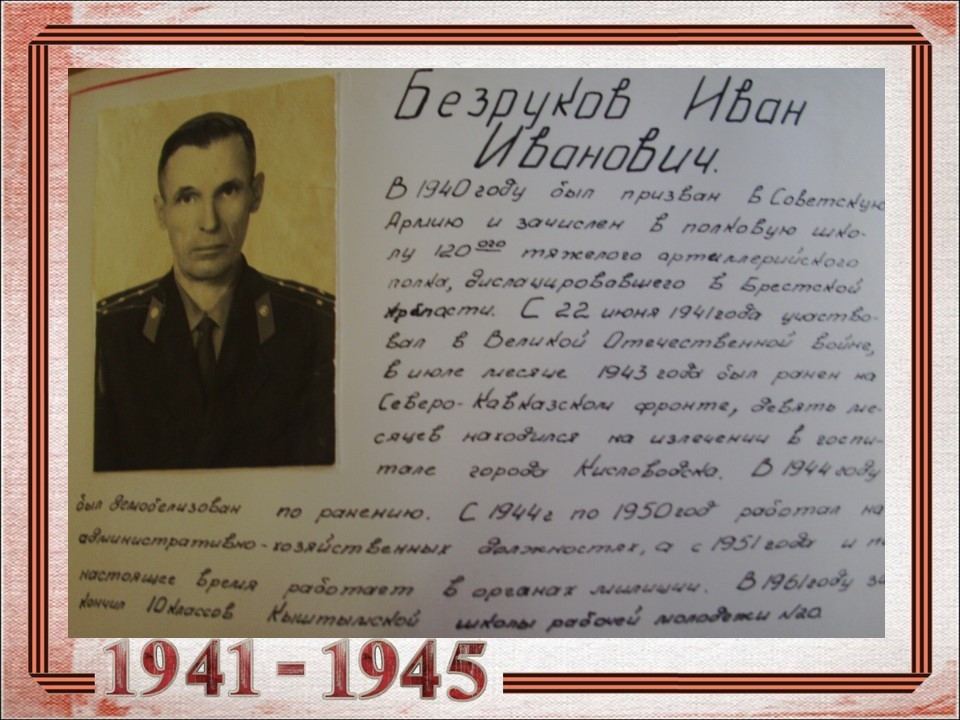 Безруков Иван
Иванович.
В 1940 году был призван в Советскую
Армию и зачислен в полковую шко-
лу 120ого тяжелого артиллерийского
полка, дислацировавшего в Брестской
крепасти. С 22 июня 1941 года участво-
вал в Великой Отечественной войне,
в июле месяце 1943 года был ранен на
Северо-Кавказском фронте, девять ме-
сяцев находился на излечении в госпи-
тале города Кисловодска. В 1944 году
был демобелизован по ранению. С 1944 г по 1950 год работал на
административно-хозяйственных должностях, а с 1951 года и п
настоящее время работает в органах милиции. В 1961 году за
кончил 10 классов Кыштымской школы рабочей молодежи №20.
1941-1945